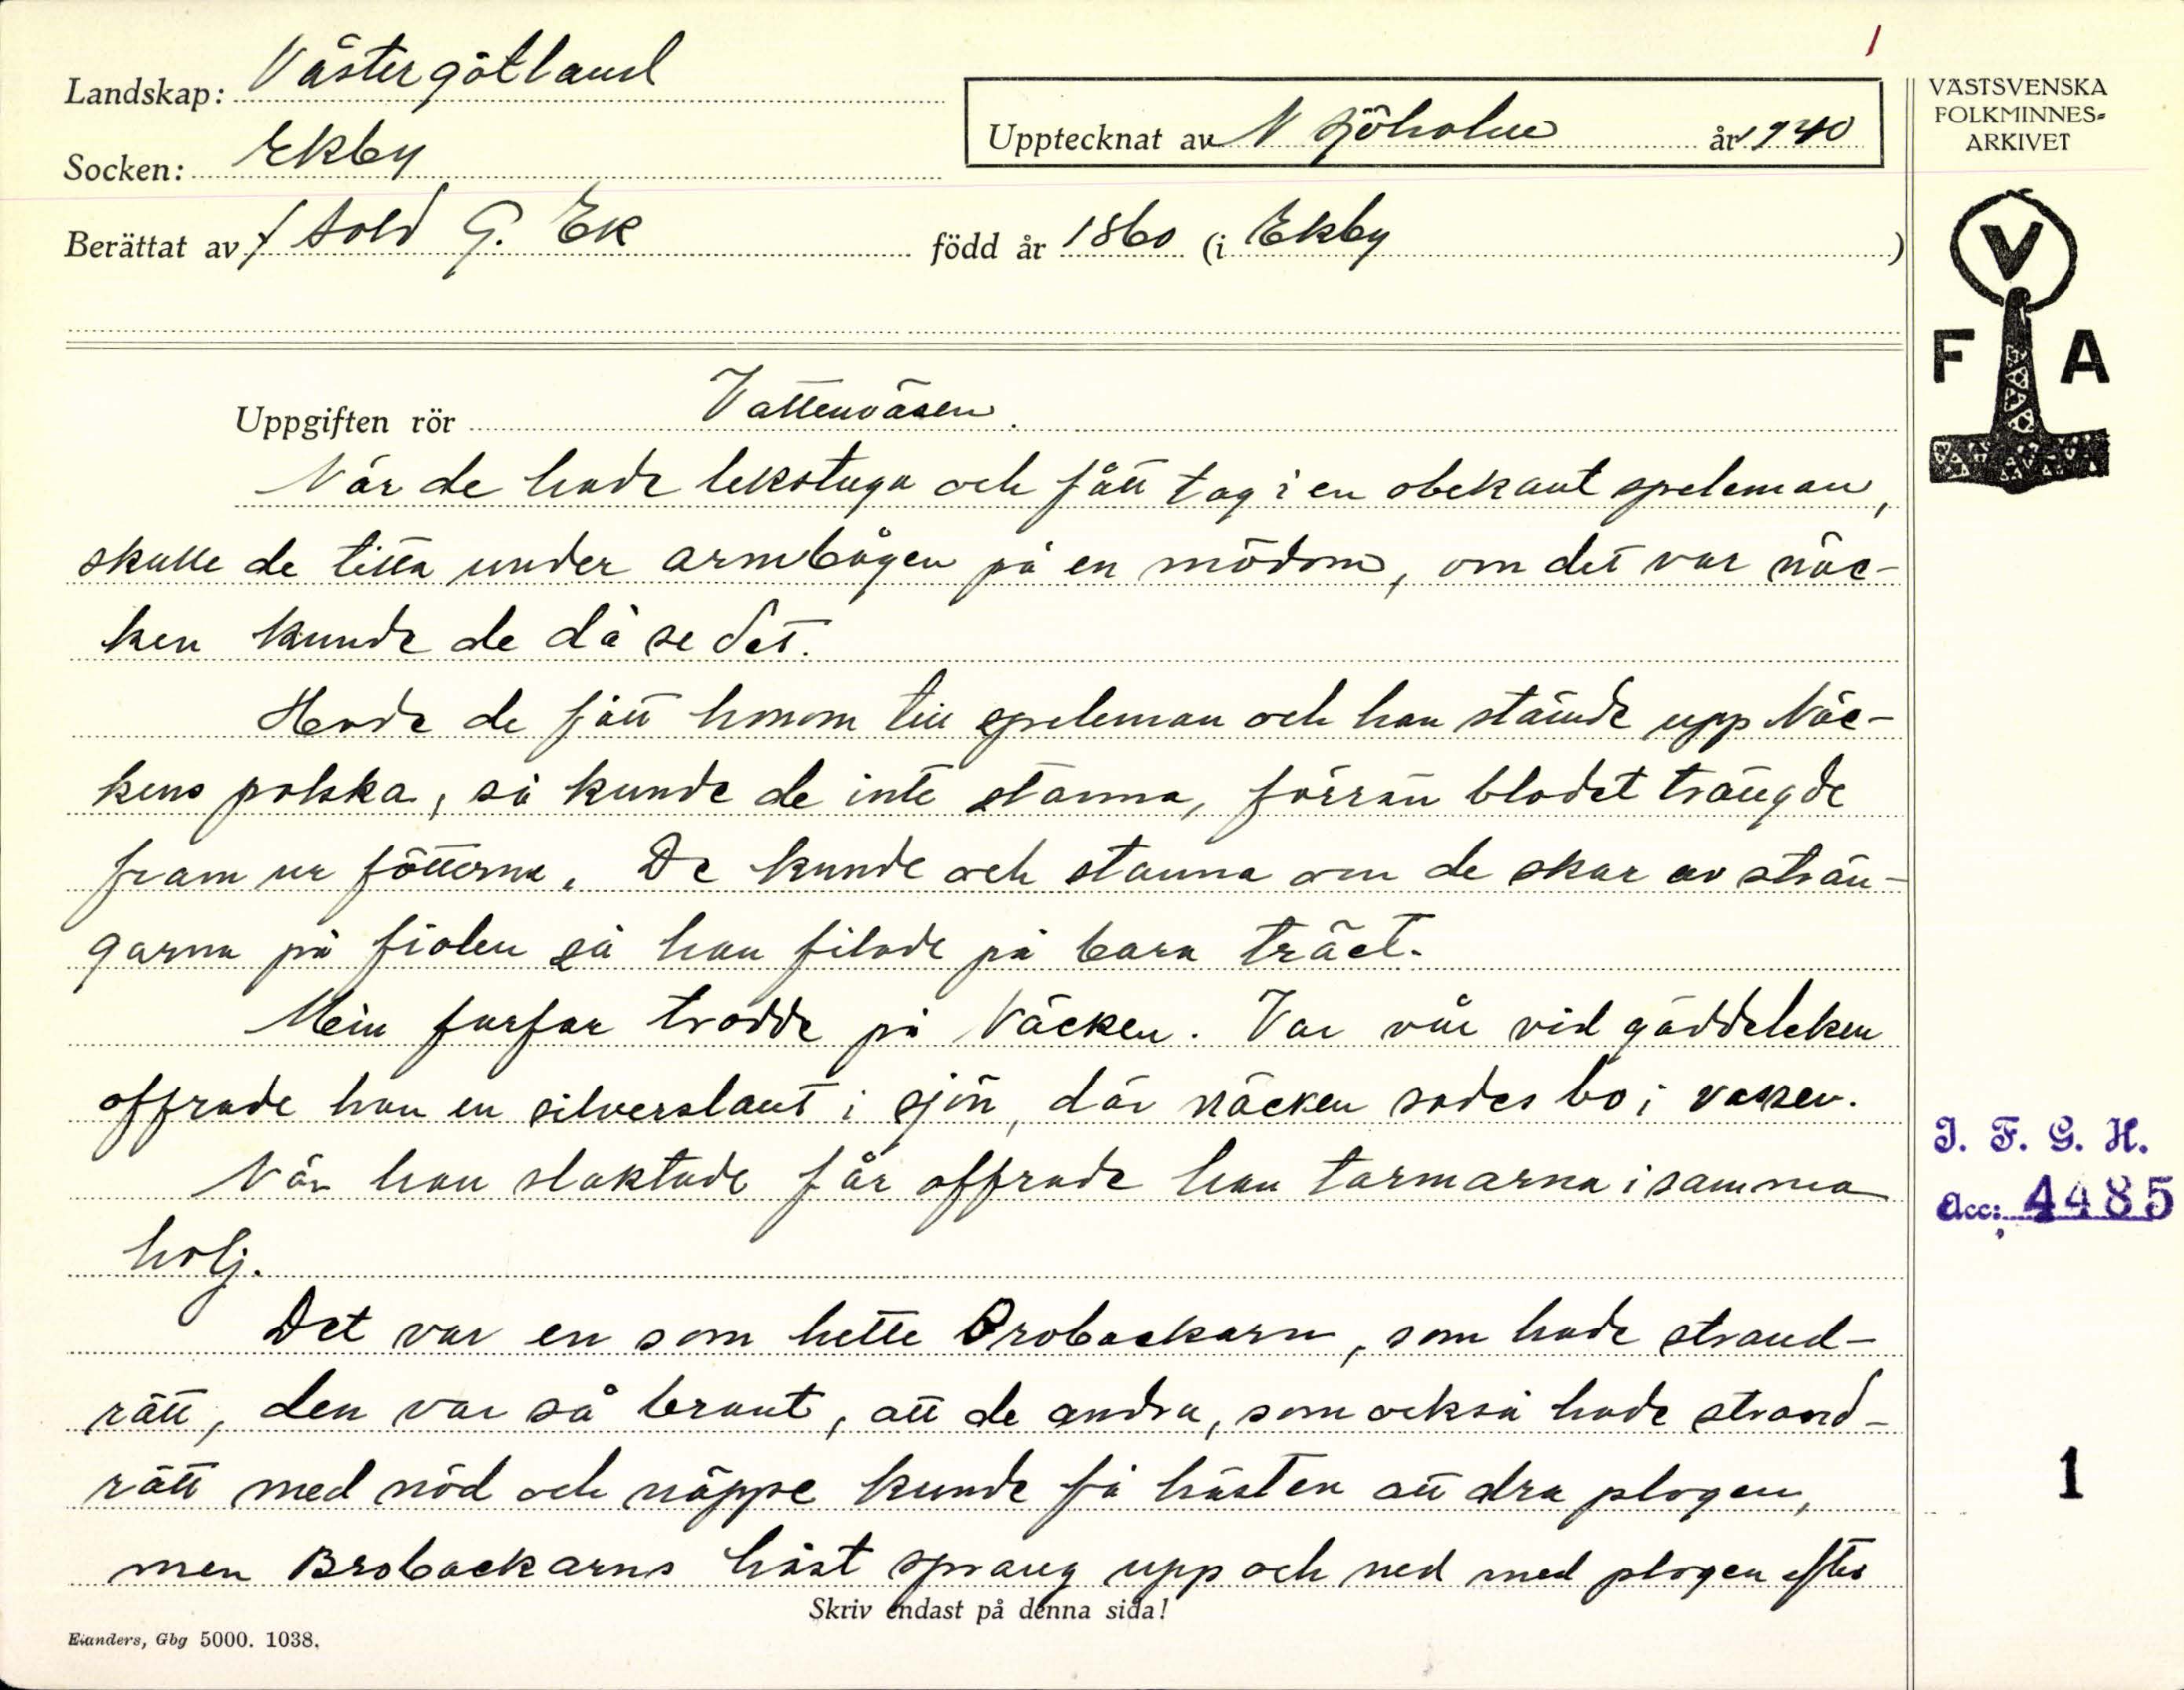 1
Landskap: Västergötland
Socken: Ekby
Upptecknat av N Sjöholm år 1940
Berättat av f sold G. Ek född år 1860 (i Ekby)
VÄSTSVENSKA
FOLKMINNES=
ARKIVET
V
F A
Uppgiften rör Vattenväsen.
När de hade lekstuga och fått tag i en obekant speleman,
skulle de titta under armbågen på en mödom, om det var näc-
ken kunde de då se det.
Hade de fått honom till speleman och han stämde upp Näc-
kens polska, så kunde de inte stanna, förrän blodet trängde
fram ur fötterna. De kunde och stanna om de skar av strän-
garna på fiolen så han filade på bara träet.
Min farfar trodde på Näcken. Var vår vid gäddeleken
offrade han en silverslant i sjön, där näcken sades bo i vassen.
När han slaktade får offrade han tarmarna i samma
holj.
Det var en som hette Brobackarn, som hade strand-
rätt, den var så brant, att de andra, som också hade strand-
rätt med nöd och näppe kunde få hästen att dra plogen,
men Brobackarns häst sprang upp och ned med plogen efter
Skriv endast på denna sida!
Elanders, Gbg 5000. 1038.
I. F. G. H.
Acc: 4485
1